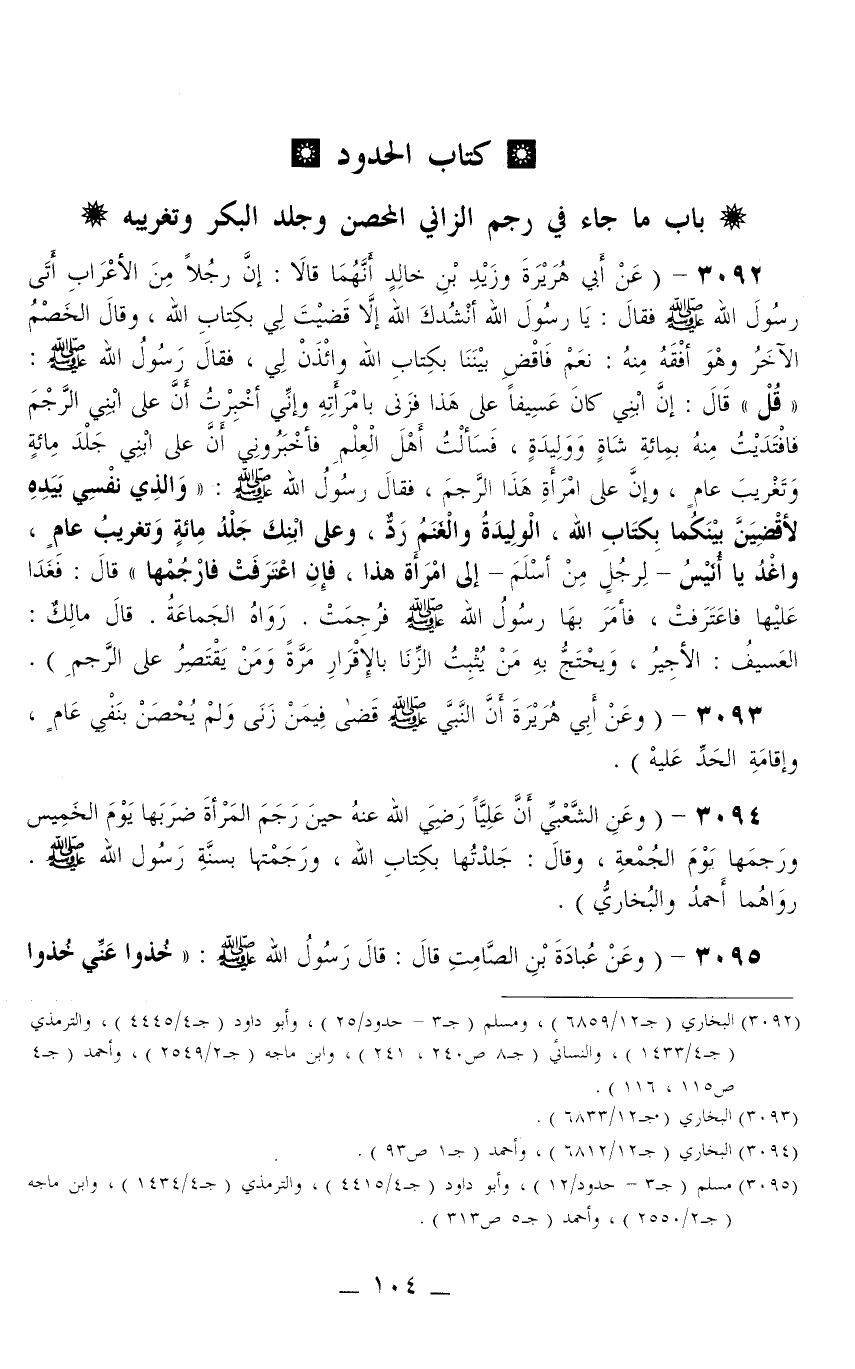 كتاب الحدود
باب ما جاء في رجم الزاني المحصن وجلد البكر وتغريبه
٣٠٩٢ – ( عَنْ أَبي هُرَيْرَةَ وزَيْدِ بْنِ خالِدٍ أَنَّهُمَا قالَا : إنَّ رجُلاً مِنَ الأعْرَابِ أَتَى
رسُولَ الله ﷺ فقالَ : يَا رسُولَ الله أنْشُدكَ الله إلَّا قضَيْتَ لِي بكتابِ الله ، وقالَ الخَصْمُ
الآخَرُ وهْوَ أفْقَهُ مِنهُ : نعَمْ فَاقْضِ بيْنَنَا بكتابِ الله وائْذَنْ لِي ، فقالَ رَسُولُ الله ﷺ :
« قُلْ » قَالَ : إنَّ ابْنِي كانَ عَسِيفاً على هَذا فزَنى بامْرَأتِهِ وإنِّي أخْبِرْتُ أنَّ على ابْنِي الرَّجْمَ
فافْتَدَيْتُ مِنهُ بمِائةِ شَاةٍ وَوَلِيدَةٍ ، فَسَألْتُ أهْلَ الْعِلْمِ فأخْبَرُونِي أنَّ على ابْنِي جَلْدَ مِائةٍ
وَتَغْرِيبَ عامٍ ، وإنَّ على امْرَأةِ هَذَا الرَّجمَ ، فقالَ رسُولُ الله ﷺ : « وَالذِي نفْسِي بيَدِهِ
لأقْضِيَنَّ بيْنَكُما بِكتَابِ الله ، الْوليدَةُ والْغَنَمُ رَدٌّ ، وعلى ابْنِكَ جَلْدُ مِائةٍ وَتغريبُ عامٍ ،
واغْدُ يا أُنَيْسُ – لِرجُلٍ مِنْ أسْلَمَ – إلى امْرَأة هذا ، فإنِ اعْتَرَفَتْ فارْجُمْها » قالَ : فَغَدَا
عَليْها فاعْتَرَفتْ ، فأمَرَ بهَا رسُولُ الله ﷺ فرُجِمَتْ . رَوَاهُ الجَماعَةُ . قالَ مالِكٌ :
العَسيفُ : الأجيرُ ، وَيحْتجُّ بهِ مَنْ يُثْبِتُ الزِّنَا بالإقْرَارِ مَرَّةً وَمَنْ يَقْتَصِرُ على الرَّجمِ ) .
٣٠٩٣ – ( وعَنْ أَبِي هُرَيْرَةَ أنَّ النَّبيَّ ﷺ قَضىٰ فِيمَنْ زَنَى وَلَمْ يُحْصَنْ بنَفْيِ عَامٍ ،
وإقامَةِ الحَدِّ عَليهْ ) .
٣٠٩٤ – ( وعَنِ الشَّعْبيِّ أنَّ عَليًّا رَضيَ الله عنهُ حينَ رَجَمَ المَرْأةَ ضرَبَها يَوْمَ الخَمِيس
ورَجمَها يَوْمَ الجُمْعةِ ، وقالَ : جَلدْتُها بكتابِ الله ، ورَجَمْتها بسنَّةِ رَسُول الله ﷺ .
روَاهُما أَحمدُ والبُخاريُّ ) .
٣٠٩٥ – ( وعَنْ عُبادَةَ بْنِ الصَّامِتِ قالَ : قالَ رَسُولُ الله ﷺ : « خُذوا عَنِّي خُذوا
(٣٠٩٢) البخاري ( جـ٦٨٥٩/١٢ ) ، ومسلم ( جـ٣ – حدود/٢٥ ) ، وأبو داود ( جـ٤٤٤٥/٤ ) ، والترمذي
( جـ١٤٣٣/٤ ) ، والنسائي ( جـ٨ ص٢٤٠ ، ٢٤١ ) ، وابن ماجه ( جـ٢٥٤٩/٢ ) ، وأحمد ( جـ٤
ص١١٥ ، ١١٦ ) .
(٣٠٩٣) البخاري ( جـ٦٨٣٣/١٢ ) .
(٣٠٩٤) البخاري ( جـ٦٨١٢/١٢ ) ، وأحمد ( جـ١ ص٩٣ ) .
(٣٠٩٥) مسلم ( جـ٣ – حدود/١٢ ) ، وأبو داود ( جـ٤٤١٥/٤ ) ، والترمذي ( جـ١٤٣٤/٤ ) ، وابن ماجه
( جـ٢٥٥٠/٢ ) ، وأحمد ( جـ٥ ص٣١٣ ) .
– ١٠٤ –